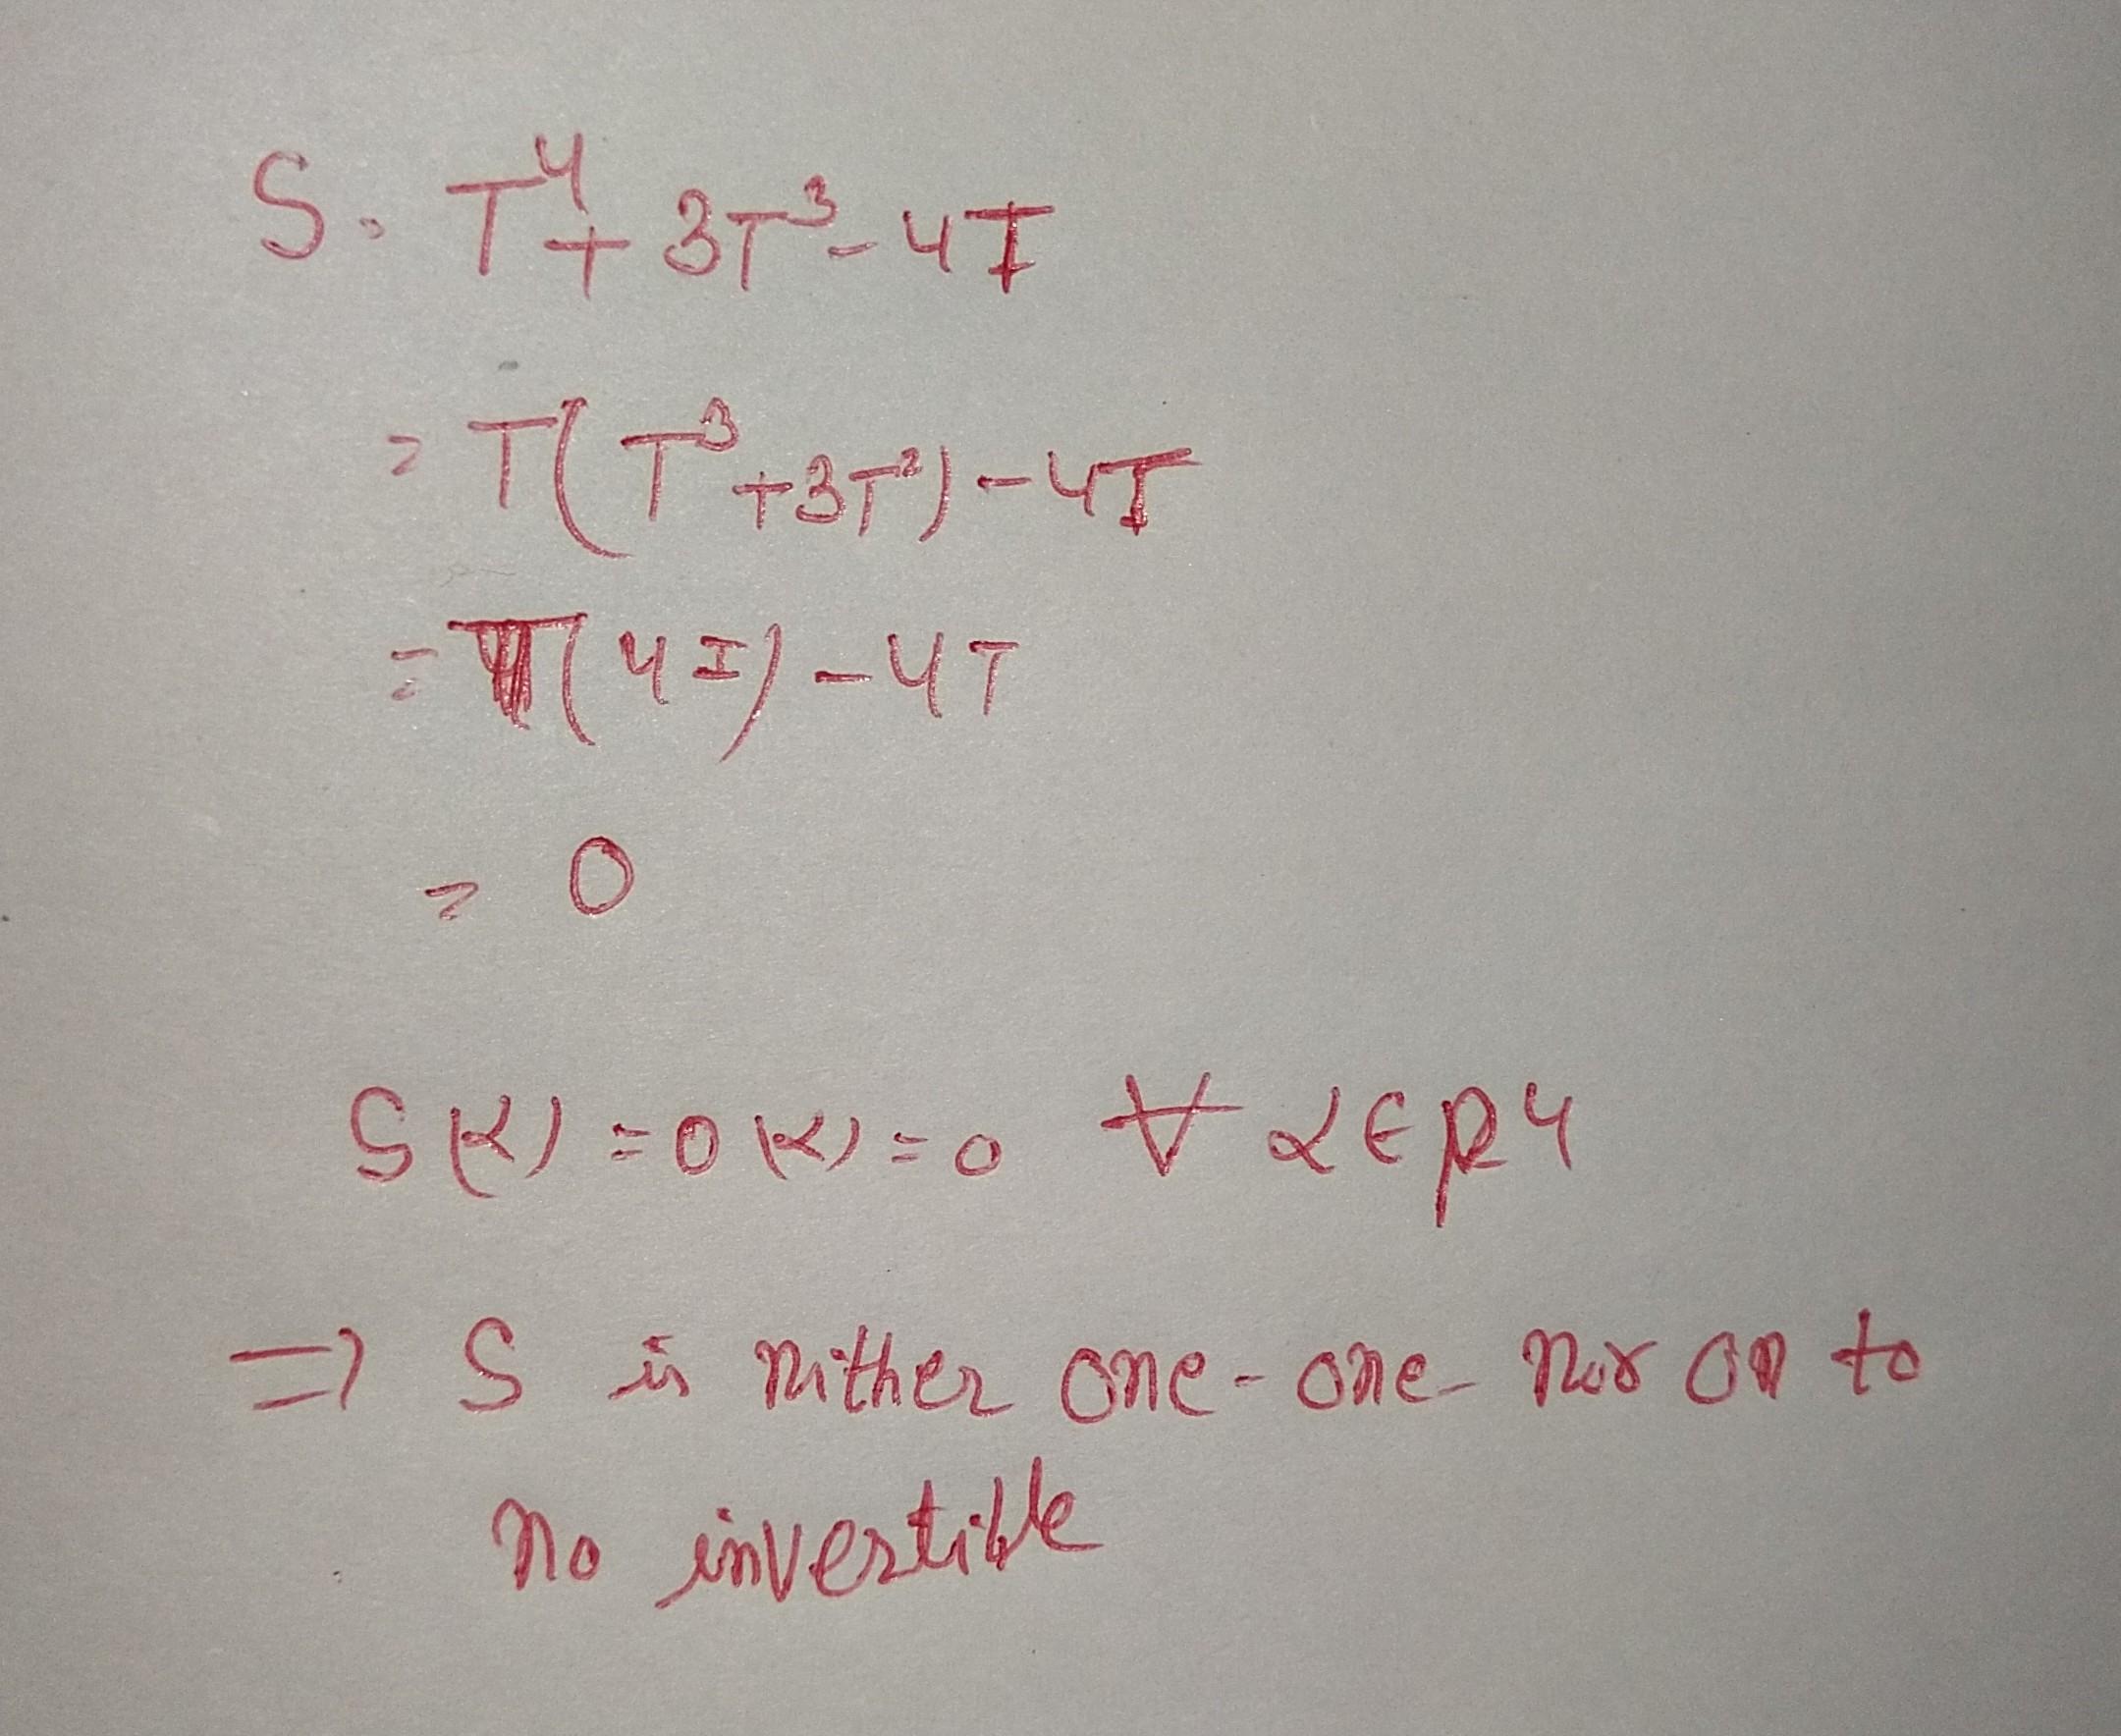 S = T⁴ + 3T³ - 4I
= T(T³ + 3T²) - 4I
= T(4I) - 4T
= 0
S(α) = 0(α) = 0 ∀ α ∈ R4
⇒ S is nither one-one nor on to
no invertible